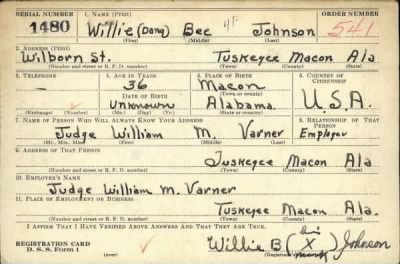 SERIAL NUMBER 1. NAME (Print) ORDER NUMBER
1480 Willie (Dony) Bee Johnson 541
(First) (Middle) (Last)
2. ADDRESS (Print)
Wilborn St. Tuskegee Macon Ala
(Number and street or R. F. D. number) (Town) (County) (State)
3. TELEPHONE 4. AGE IN YEARS 5. PLACE OF BIRTH 6. COUNTRY OF CITIZENSHIP
- 36 Macon
DATE OF BIRTH (Town or county)
Unknown Alabama U.S.A.
(Exchange) (Number) (Mo.) (Day) (Yr.) (State or country)
7. NAME OF PERSON WHO WILL ALWAYS KNOW YOUR ADDRESS 8. RELATIONSHIP OF THAT PERSON
Judge William M. Varner Employer
(Mr., Mrs., Miss) (First) (Middle) (Last)
9. ADDRESS OF THAT PERSON
Tuskegee Macon Ala
(Number and street or R. F. D. number) (Town) (County) (State)
10. EMPLOYER'S NAME
Judge William M. Varner
11. PLACE OF EMPLOYMENT OR BUSINESS
Tuskegee Macon Ala.
(Number and street or R. F. D. number) (Town) (County) (State)
I AFFIRM THAT I HAVE VERIFIED ABOVE ANSWERS AND THAT THEY ARE TRUE.
REGISTRATION CARD
D. S. S. Form 1
Willie B (his X mark) Johnson
(over)